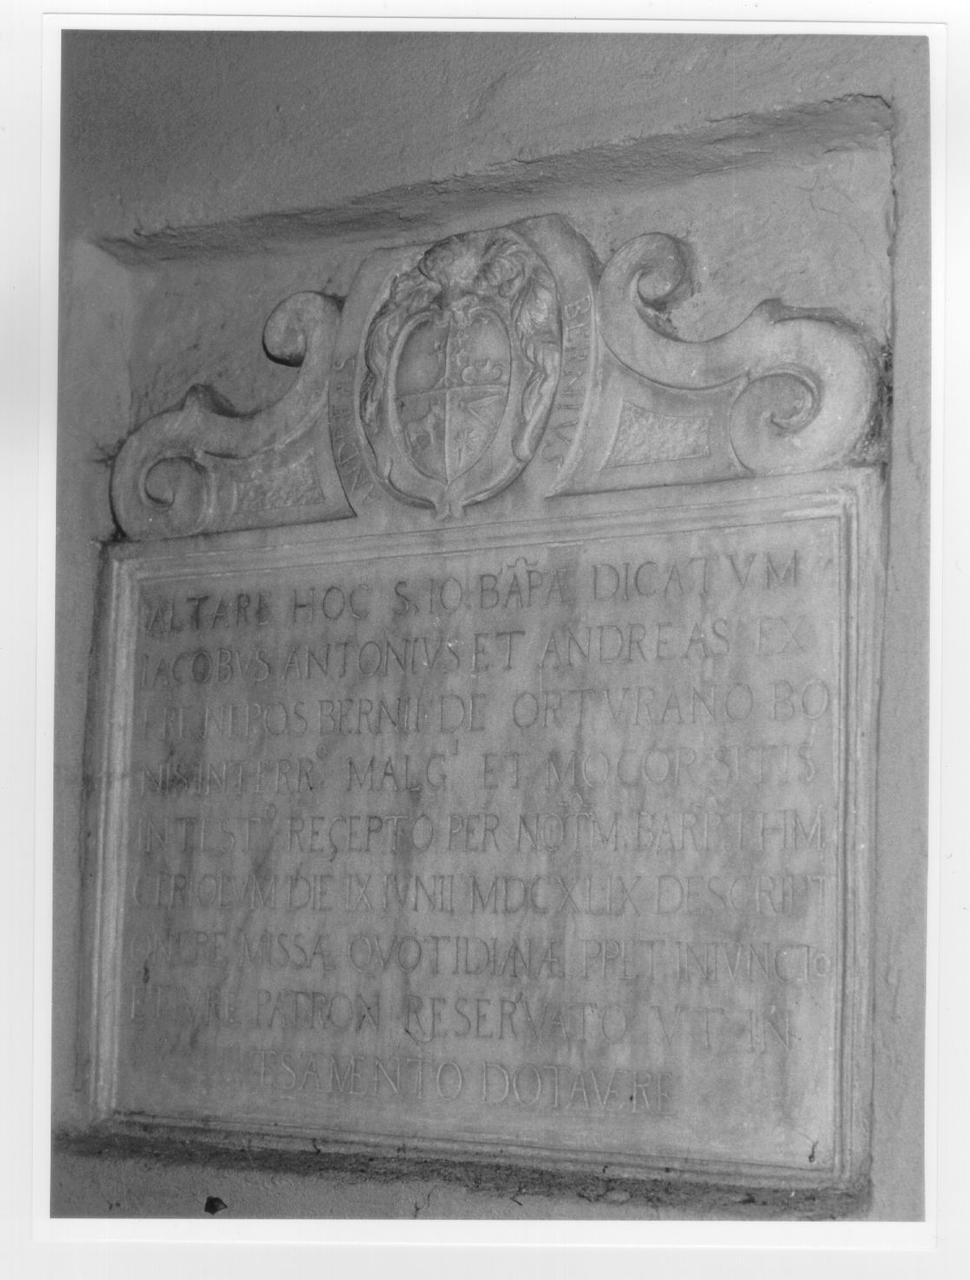 BERNIVS
ALTARE HOC S. IO. BAPÆ DICATVM
IACOBVS ANTONIVS ET ANDREAS EX
NEPOS BERNII DE ORTVRANO BO
NIS IN TERR° MALG¹ ET MOCOR SITIS
IN TEST° RECEPTO PER NOTM. BART THM
DIE IX IVNII MDCXLIX DESCRIPT
ONERE MISSÆ QVOTIDIANÆ PPET INIVNCTO
ET IVRE PATRON RESERVATO VT IN
TESAMENTO DOTAVERE